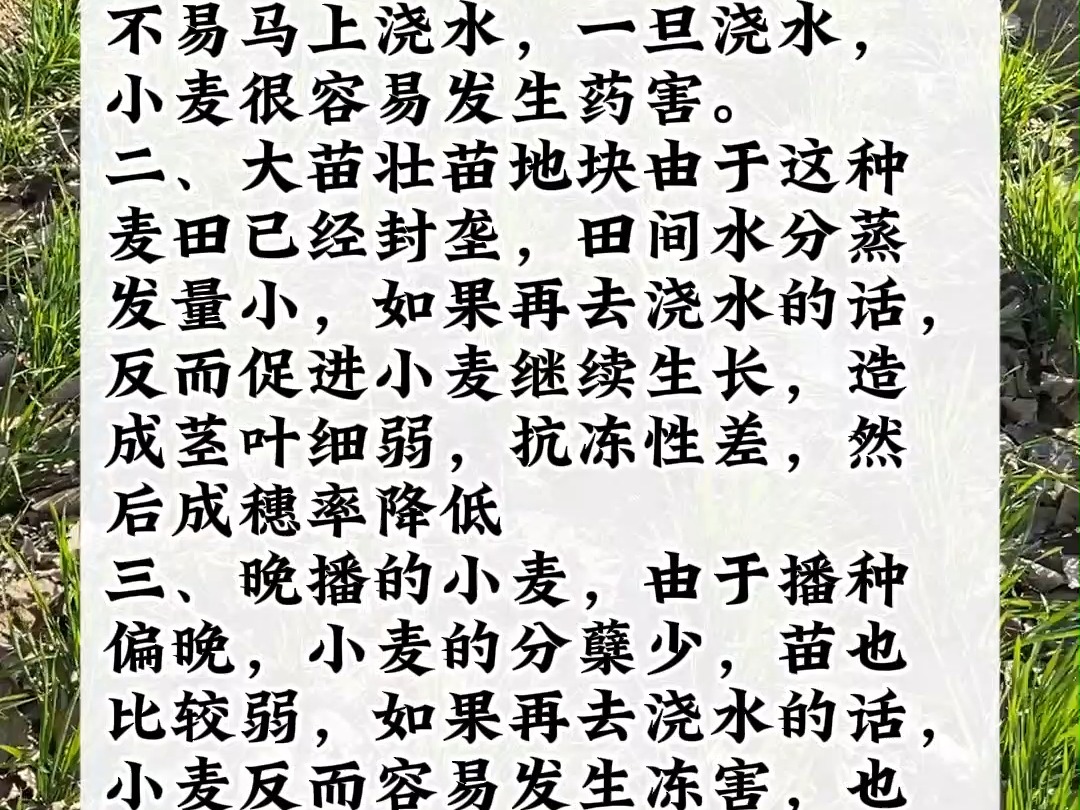 不易马上浇水，一旦浇水，
小麦很容易发生药害。
二、大苗壮苗地块由于这种
麦田已经封垄，田间水分蒸
发量小，如果再去浇水的话，
反而促进小麦继续生长，造
成茎叶细弱，抗冻性差，然
后成穗率降低
三、晚播的小麦，由于播种
偏晚，小麦的分蘖少，苗也
比较弱，如果再去浇水的话，
小麦反而容易发生冻害，也